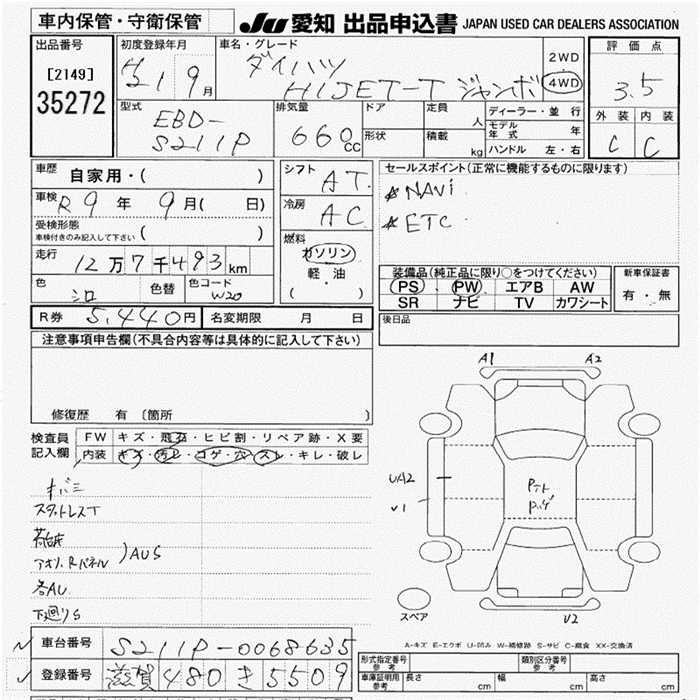 車内保管・守衛保管
JU 愛知 出品申込書 JAPAN USED CAR DEALERS ASSOCIATION
出品番号
[2149]
35272
初度登録年月
H21 9月
車名・グレード
ダイハツ
HIJET-T ジャンボ
2WD
4WD
評価点
3.5
外装 内装
C C
型式
EBD-
S211P
排気量
660cc
ドア
形状
定員 人
積載 kg
ディーラー・並行
モデル年式 年
ハンドル 左・右
車歴
自家用・( )
車検
R9年 9月( 日)
受検形態
車検付きのみ記入して下さい ( )
走行
12万7千493km
色
シロ
色替
色コード
W20
シフト
AT
冷房
AC
燃料
ガソリン
軽・油
( )
セールスポイント(正常に機能するものに限ります)
☆NAVi
☆ETC
装備品(純正品に限り○をつけてください)
PS PW エアB AW
SR ナビ TV カワシート
新車保証書
有・無
R券 5,440円
名変期限 月 日
後日品
注意事項申告欄(不具合内容等は具体的に記入して下さい)
修復歴 有 〔箇所 〕
検査員
記入欄
FW キズ・飛石・ヒビ割・リペア跡・X要
内装 キズ・汚レ・コゲ・穴・スレ・キレ・破レ
オバミ
スタットレスT
荷台床
アオリ、Rパネル )AUS
各AU
下廻りS
A1
A2
UA2
V1
V2
スペア
A-キズ E-エクボ U-凹み W-補修跡 S-サビ C-腐食 XX-交換済
車台番号
S211P-0068635
登録番号
滋賀480き5509
形式指定番号
参考
類別区分番号
参考
車庫証明用
参考
長さ cm 幅 cm 高さ cm